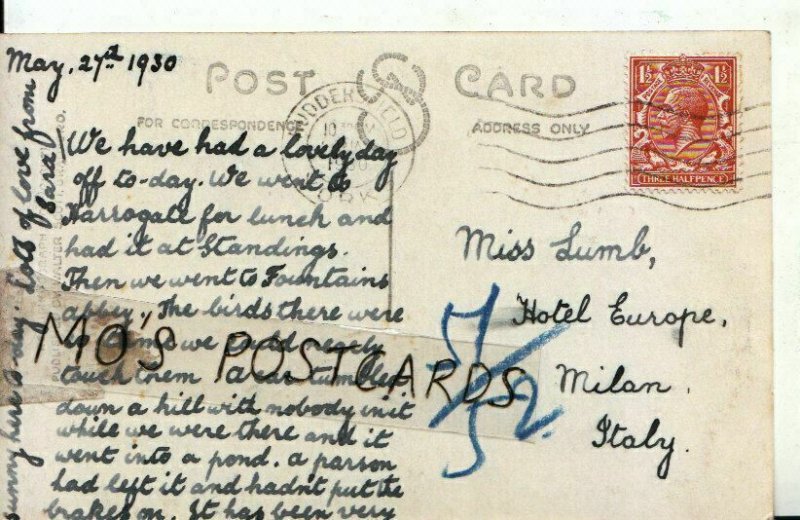 May. 27th 1930
POST CARD
FOR CORRESPONDENCE
ADDRESS ONLY
HUDDERSFIELD
1930
1½ 1½
THREE HALFPENCE
We have had a lovely day
off to-day. We went to
Harrogate for lunch and
had it at Standings.
Then we went to Fountains
abbey. The birds there were
so we could nearly
touch them a car tumbled
down a hill with nobody in it
while we were there and it
went into a pond. a parson
had left it and hadn't put the
brakes on. It has been very
sunny here to-day. Lots of love from
Sara
MO'S POSTCARDS
Miss Lumb,
Hotel Europe,
Milan.
Italy.